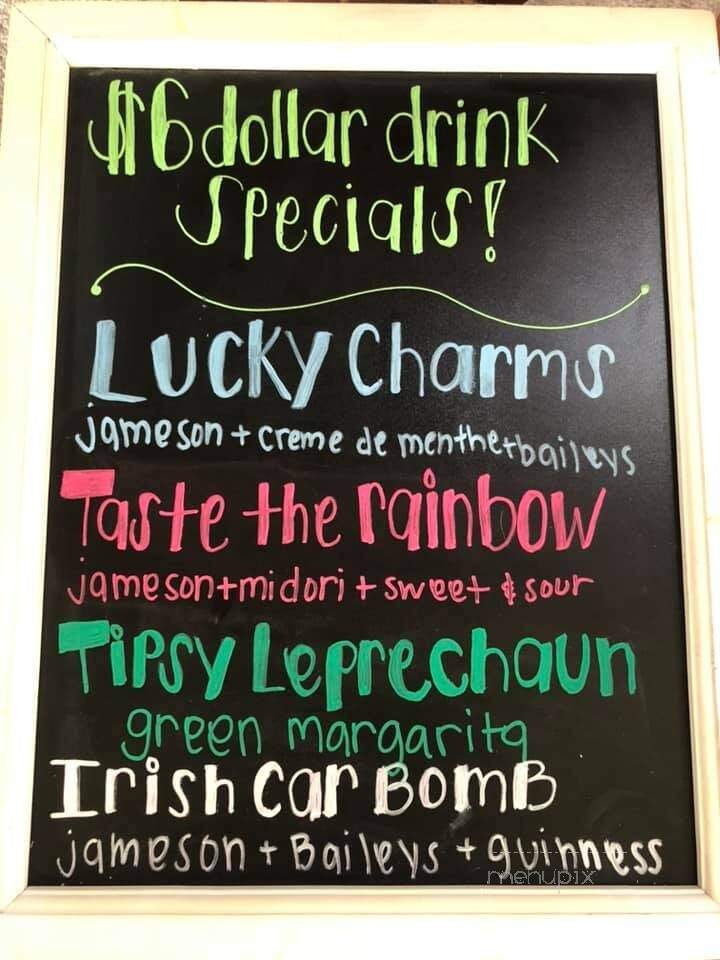 $6 dollar drink
Specials!
Lucky Charms
jameson + creme de menthe + baileys
Taste the rainbow
jameson + midori + sweet & sour
Tipsy Leprechaun
green margarita
Irish Car Bomb
jameson + Baileys + guinness
menupix